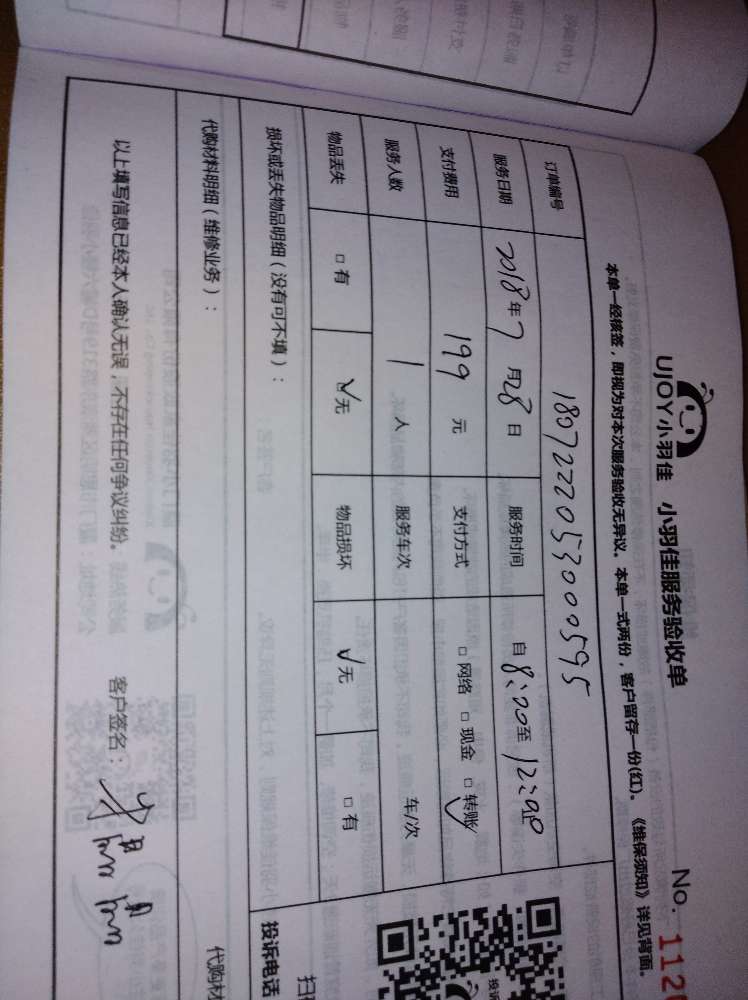 UJOY小羽佳 小羽佳服务验收单 No. 112
本单一经核签，即视为对本次服务验收无异议。本单一式两份，客户留存一份(红)。《维保须知》详见背面。
订单编号 180722205053000595
服务日期 2018年7月28日 服务时间 自8:00至12:00
支付费用 199元 支付方式 □网络 □现金 □转账
服务人数 1人 服务车次 车/次
物品丢失 □有 √无 物品损坏 √无 □有
损坏或丢失物品明细（没有可不填）：
投诉电话
代购材料明细（维修业务）：
代购材
以上填写信息已经本人确认无误，不存在任何争议纠纷。 客户签名：